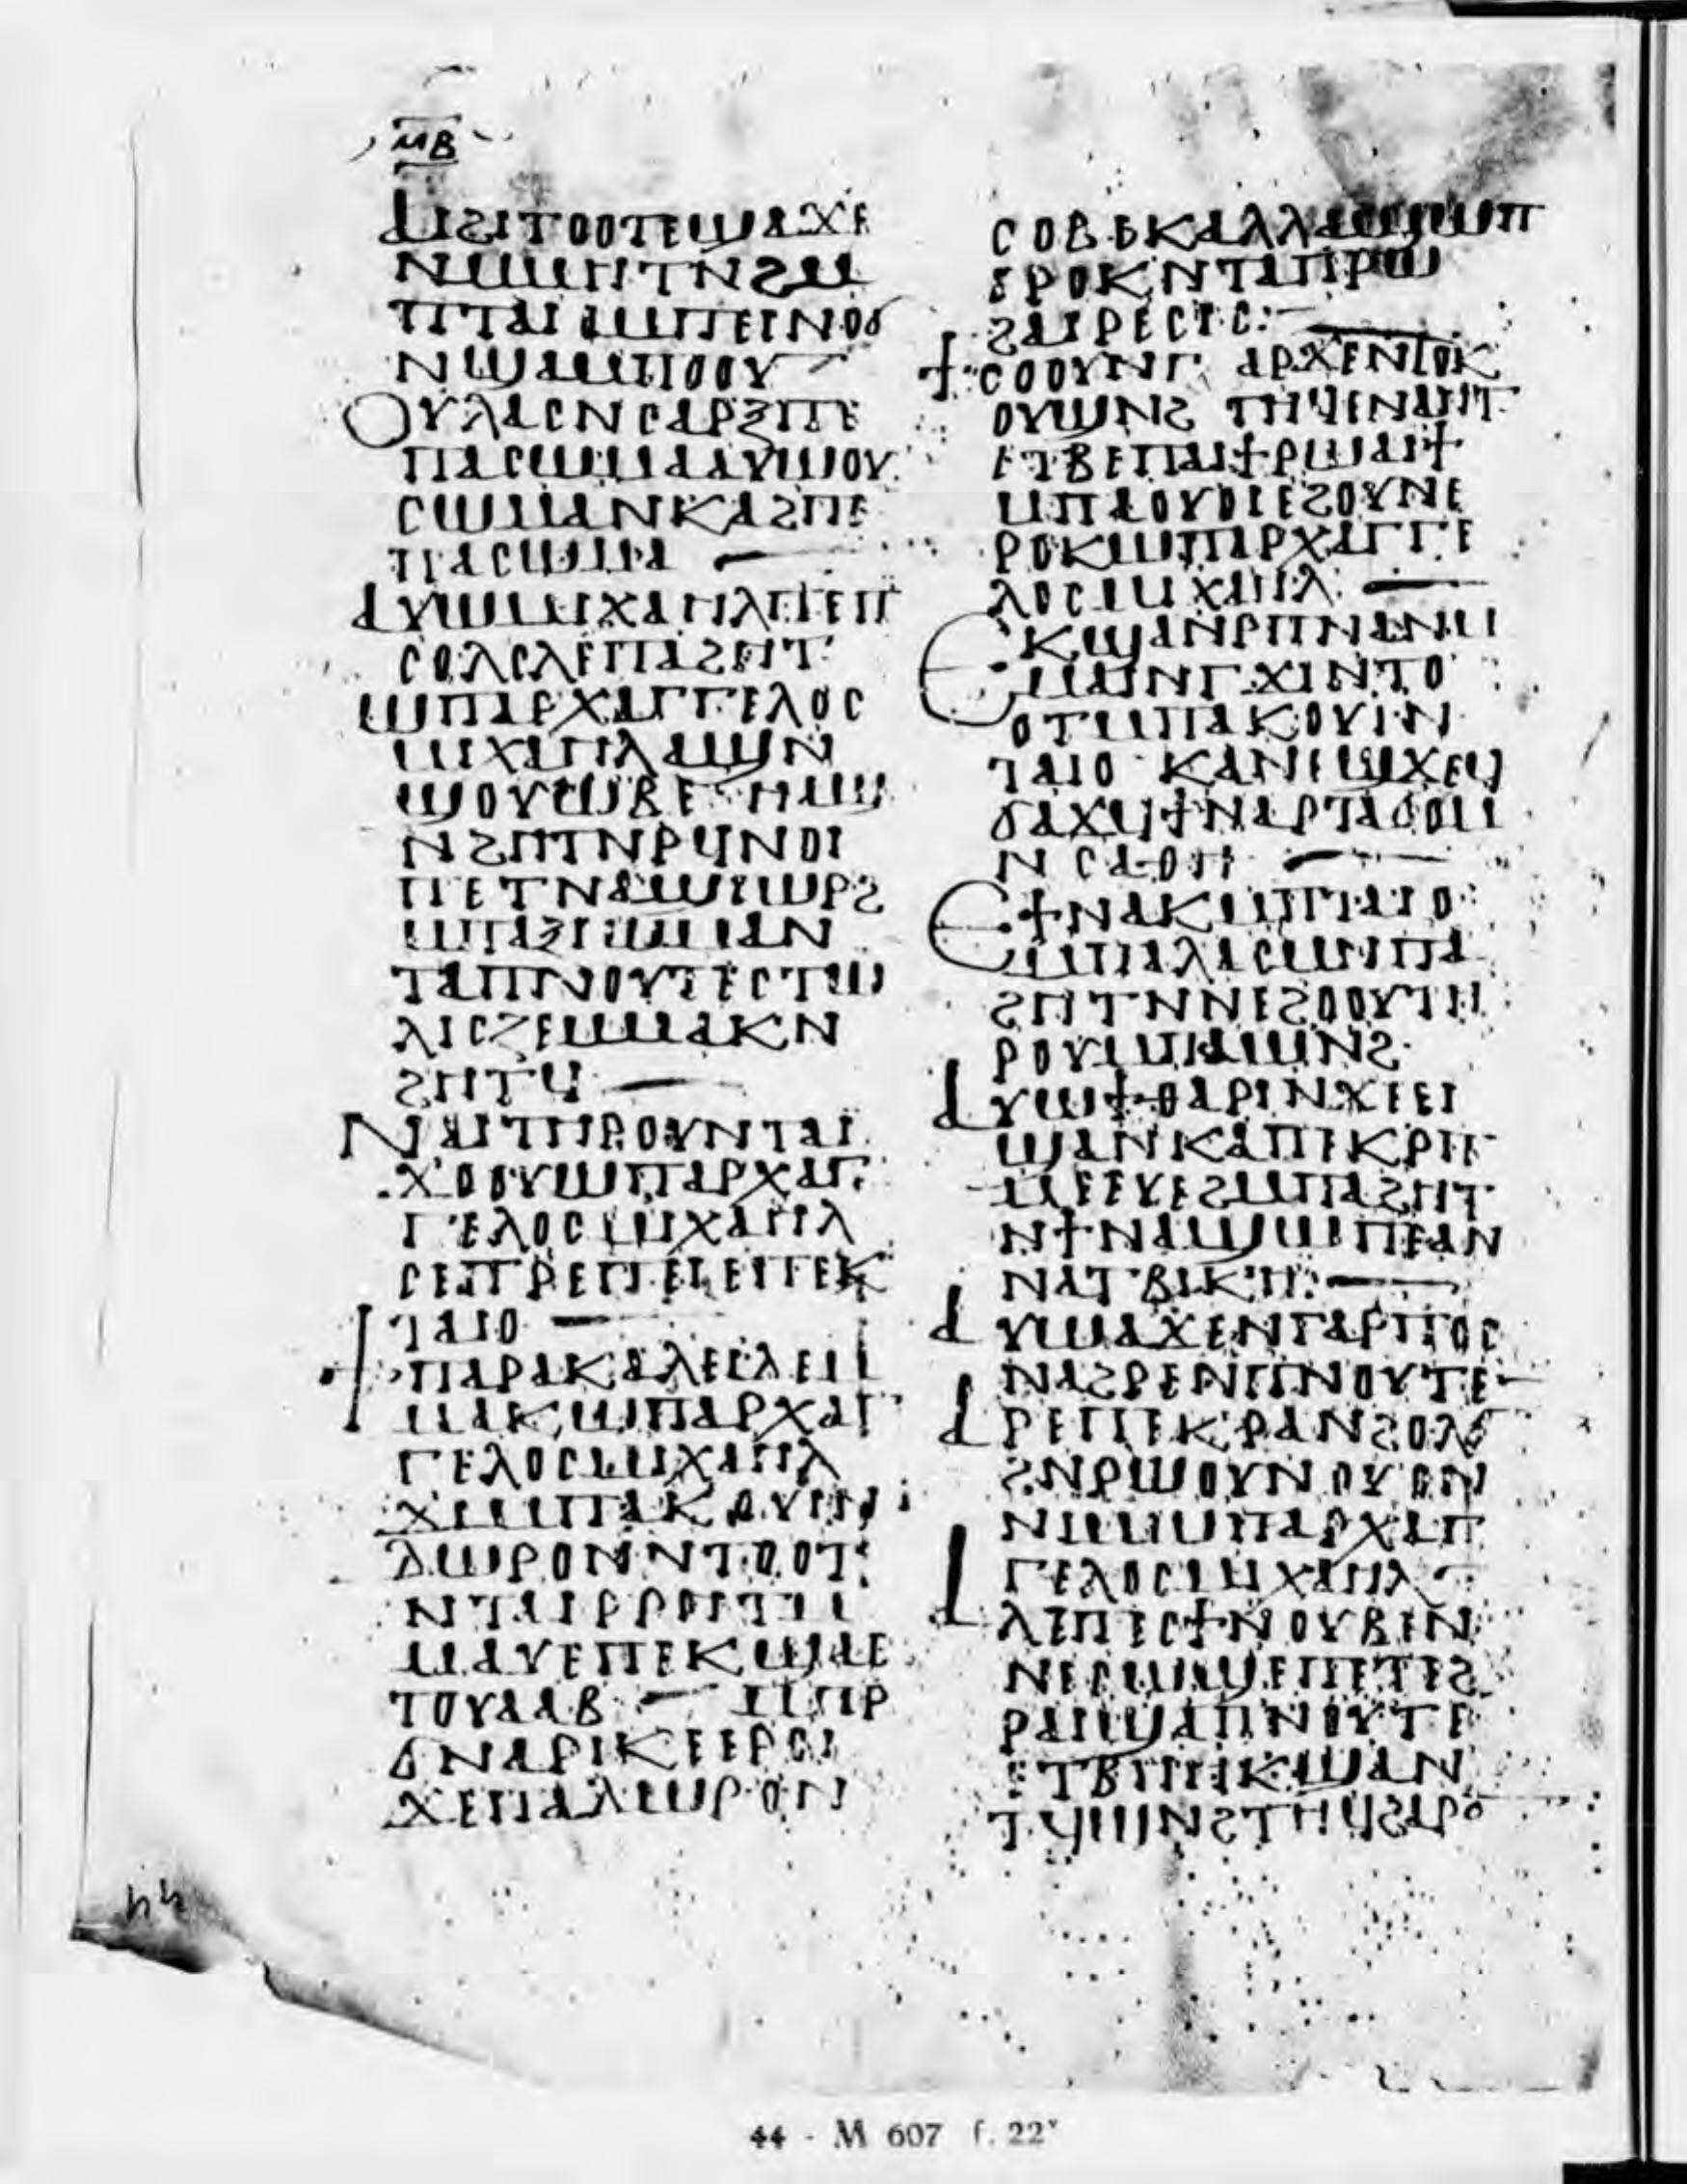 ⲙⲃ
ⲁⲓϩⲓⲧⲟⲟⲧⲉϣⲁϫⲉ
ⲛⲙⲙⲏⲧⲛϩⲙ
ⲡⲧⲁⲓⲟⲙⲡⲉⲓⲛⲟϭ
ⲛϣⲁⲙⲡⲟⲟⲩ
ⲟⲩⲗⲁⲥⲛⲥⲁⲣⲝⲡⲉ
ⲡⲁⲥⲱⲙⲁⲁⲩⲱⲟⲩ
ⲥⲱⲙⲁⲛⲕⲁϩⲡⲉ
ⲡⲁⲥⲱⲙⲁ
ⲁⲩⲱⲙⲓⲭⲁⲏⲗⲡⲉⲡ
ⲥⲟⲗⲥⲗⲉⲡⲁϩⲏⲧ
ⲱⲡⲁⲣⲭⲁⲅⲅⲉⲗⲟⲥ
ⲙⲓⲭⲁⲏⲗⲁϣⲛ
ϣⲟⲩⲱⲃⲉ ⲏⲁϣ
ⲛϩⲏⲧⲛⲣϥⲛⲟⲓ
ⲡⲉⲧⲛⲁϣⲉⲓⲱⲣϩ
ⲙⲡⲁⲝⲓⲱⲙⲁⲛ
ⲧⲁⲡⲛⲟⲩⲧⲉⲥⲧⲱ
ⲗⲓⲥⲍⲉⲙⲙⲁⲕⲛ
ϩⲏⲧϥ
ⲛⲁⲓⲧⲏⲣⲟⲩⲛⲧⲁⲓ
ϫⲟⲟⲩⲱⲡⲁⲣⲭⲁⲅ
ⲅⲉⲗⲟⲥⲙⲓⲭⲁⲏⲗ
ⲥⲉⲡⲣⲉⲡⲉⲓⲉⲡⲉⲕ
ⲧⲁⲓⲟ
ϯⲡⲁⲣⲁⲕⲁⲗⲉⲓⲇⲉⲙ
ⲙⲁⲕⲱⲡⲁⲣⲭⲁⲅ
ⲅⲉⲗⲟⲥⲙⲓⲭⲁⲏⲗ
ϫⲓⲙⲡⲁⲕⲟⲩⲓⲛ
ⲇⲱⲣⲟⲛⲛⲧⲟⲟⲧ
ⲛⲧⲁⲓⲣ
ⲙⲁⲩⲉⲡⲉⲕϣⲁⲉ
ⲧⲟⲩⲁⲁⲃ ⲙⲡⲣ
ϭⲛⲁⲣⲓⲕⲉⲉⲣⲟⲓ
ϫⲉⲡⲁⲇⲱⲣⲟⲛ
ⲥⲟⲃⲉⲕⲁⲗⲗⲁϣⲱⲡ
ⲉⲣⲟⲕⲛⲧⲁⲡⲣⲟ
ϩⲁⲓⲣⲉⲥⲓⲥ
ϯⲥⲟⲟⲩⲛⲅⲁⲣϫⲉⲛⲧⲟⲕ
ⲟⲩϣⲛϩⲧⲏϥⲉⲛⲁⲏⲧ
ⲉⲧⲃⲉⲡⲁⲓϯⲣⲱⲁⲓϯ
ⲙⲡⲁⲟⲩⲟⲓⲉϩⲟⲩⲛⲉ
ⲣⲟⲕⲱⲡⲁⲣⲭⲁⲅⲅⲉ
ⲗⲟⲥⲙⲓⲭⲁⲏⲗ
ⲉⲕϣⲁⲛⲣⲡⲛⲁⲛⲙ
ⲙⲁⲓⲛⲅϫⲓⲛⲧⲟ
ⲟⲧⲙⲡⲁⲕⲟⲩⲓⲛ
ⲧⲁⲓⲟ ⲕⲁⲛⲉϣϫⲉⲟⲩ
ϭⲁϫⲃϯⲛⲁⲣⲧⲁϭⲟⲙ
ⲛⲥⲁⲑⲏ
ⲉϯⲛⲁⲕⲙⲡⲧⲁⲓⲟ
ⲙⲡⲁⲗⲁⲥⲙⲛⲡⲁ
ϩⲏⲧⲛⲛⲉϩⲟⲟⲩⲧⲏ
ⲣⲟⲩⲙⲡⲁⲱⲛϩ
ⲁⲩⲱϯⲑⲁⲣⲓⲛϫⲉⲉⲓ
ϣⲁⲛⲕⲁⲡⲉⲕⲣⲡ
ⲙⲉⲉⲩⲉϩⲙⲡⲁϩⲏⲧ
ⲛϯⲛⲁϣⲱⲡⲉⲁⲛ
ⲛⲁⲧⲃⲉⲕⲏ
ⲁⲩⲱⲁϫⲉⲛⲕⲁⲣⲡⲟⲥ
ⲛⲁϩⲣⲉⲛⲡⲛⲟⲩⲧⲉ
ⲁⲣⲉⲡⲉⲕⲣⲁⲛϩⲟⲗϭ
ϩⲛⲣⲱⲟⲩⲛⲟⲩⲟⲛ
ⲛⲓⲙⲱⲡⲁⲣⲭⲁⲅ
ⲅⲉⲗⲟⲥⲙⲓⲭⲁⲏⲗ
ⲁⲗⲡⲓⲥϯⲛⲟⲩⲃⲓⲛ
ⲛⲉⲥⲱϣⲉⲡⲉⲧⲉϩ
ⲣⲁⲓϣⲁⲡⲛⲟⲩⲧⲉ
ⲉⲧⲃⲏⲏⲧⲕϣⲁⲛ
ⲧϥϣⲛϩⲧⲏϥϩⲁⲣⲟ
44 - M 607 f. 22ᵛ